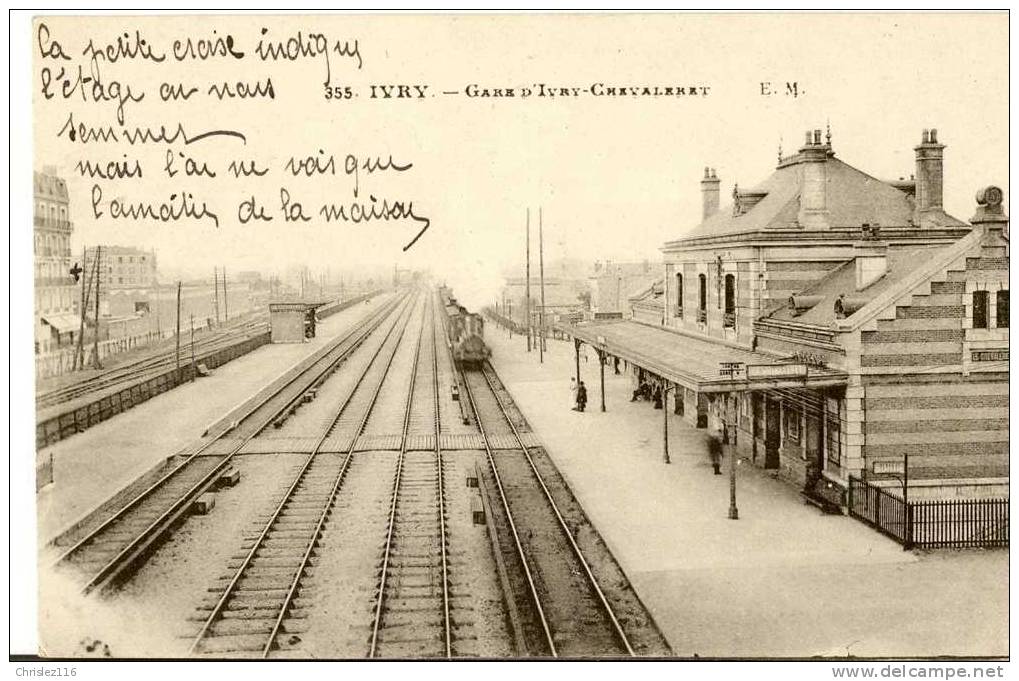 la petite croise indique
l'étage ou nous
sommes
mais l'on ne vois que
la moitié de la maison
355. IVRY. — GARE D'IVRY-CHEVALERET E. M.
Chrislez116
www.delcampe.net